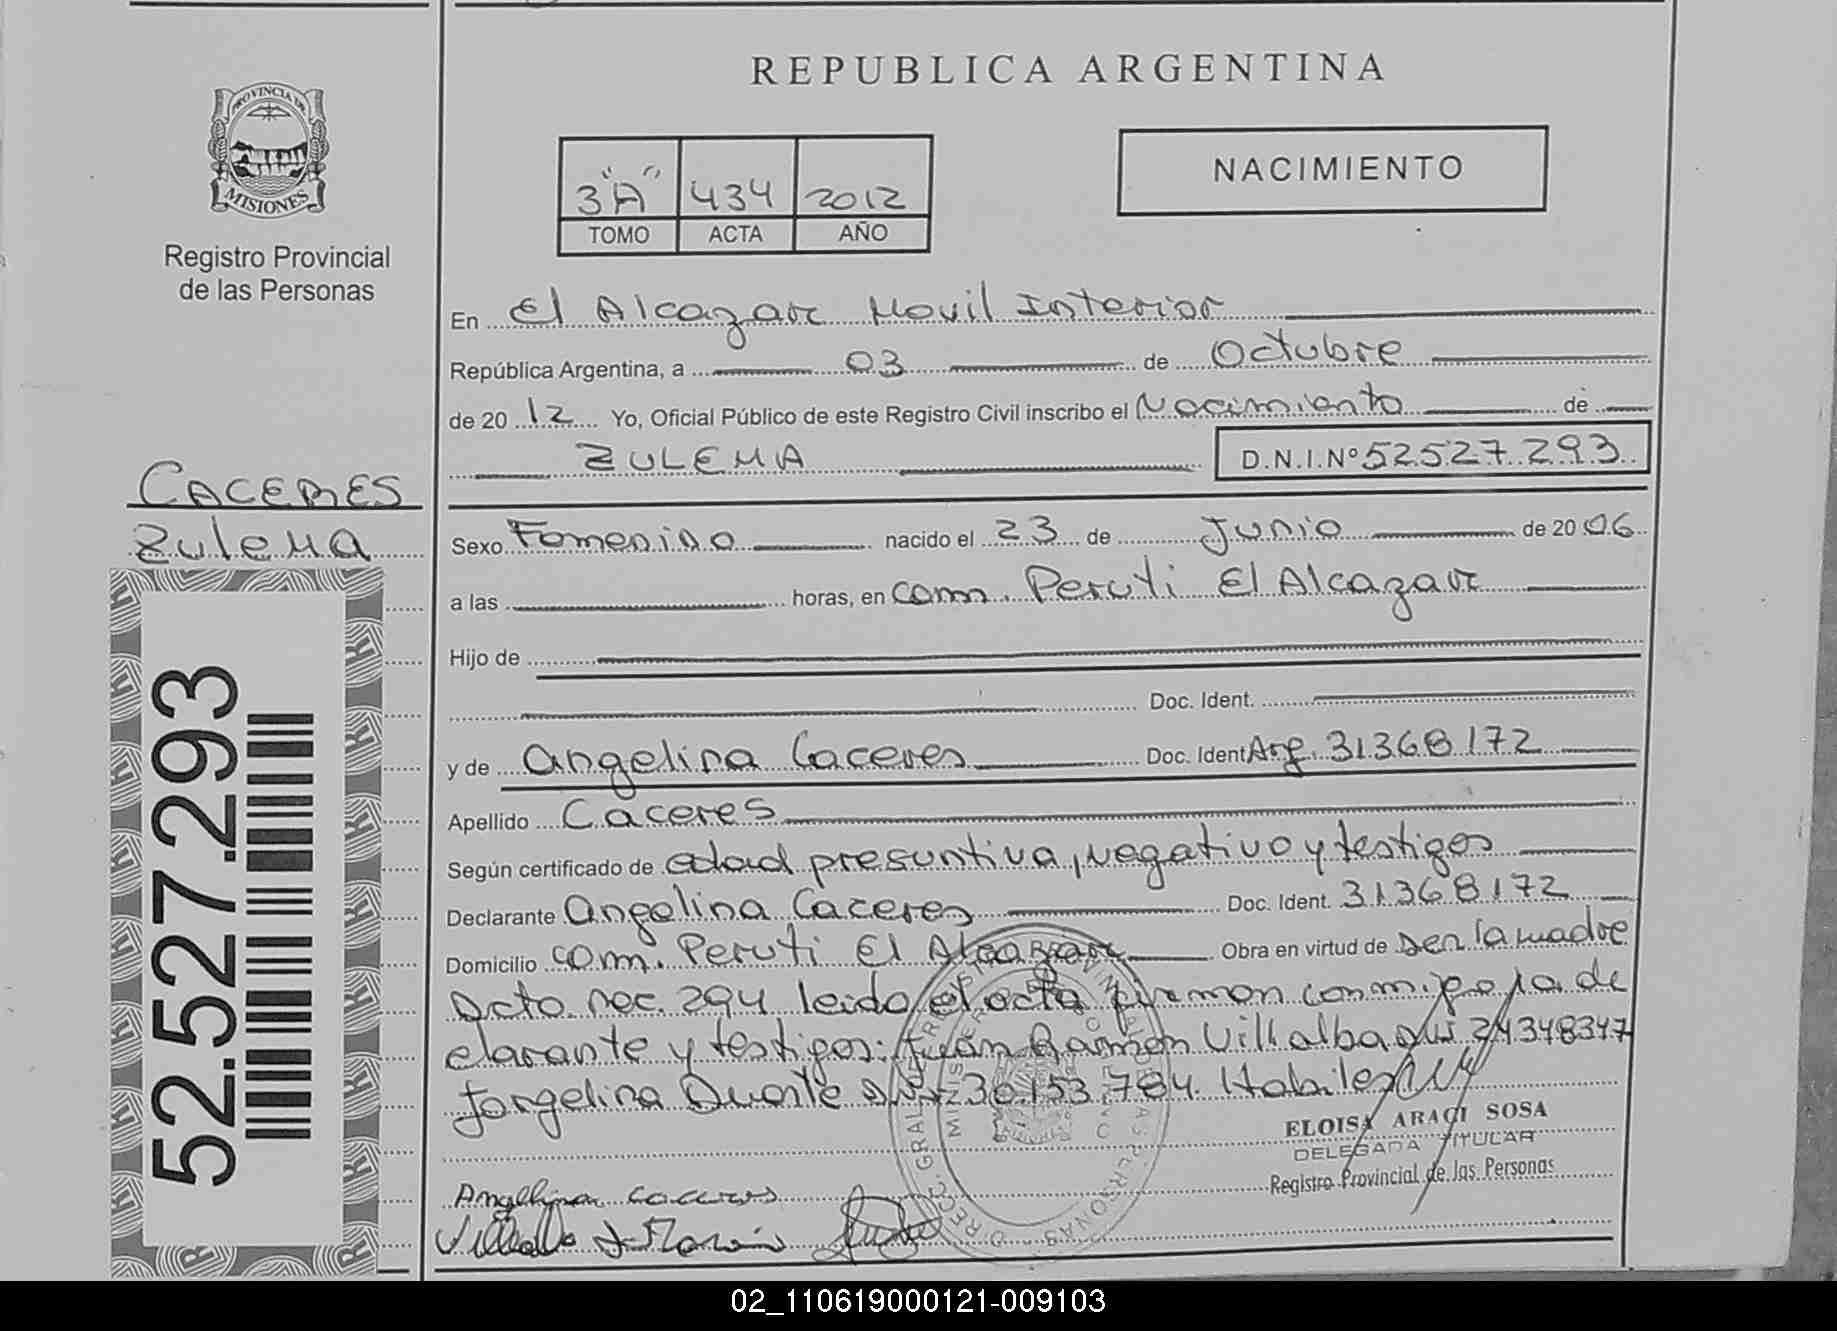 REPUBLICA ARGENTINA
PROVINCIA DE
MISIONES
Registro Provincial
de las Personas
3 "A" 434 2012
TOMO ACTA AÑO
NACIMIENTO
En El Alcazar Movil Interior
República Argentina, a 03 de Octubre
de 20 12 Yo, Oficial Público de este Registro Civil inscribo el Nacimiento de
ZULEMA D.N.I.Nº 52527.293
CACERES
Zulema
Sexo Femenino nacido el 23 de Junio de 20 06
a las horas, en Com. Peruti El Alcazar
Hijo de
Doc. Ident.
y de Angelina Caceres Doc. Ident Arg. 31368172
Apellido Caceres
Según certificado de edad presuntiva, negativo y testigos
Declarante Angelina Caceres Doc. Ident. 31368172
Domicilio Com. Peruti El Alcazar Obra en virtud de ser la madre
Acto. rec. 294 leido el acta firman conmigo la de
clarante y testigos: Juan Ramon Villalba DNI 24348347
Jorgelina Duarte DNI 30.153.784. Habiles
ELOISA ARACI SOSA
DELEGADA TITULAR
Registro Provincial de las Personas
Angelina caceres
Villalba J Ramón
52.527.293
02_110619000121-009103